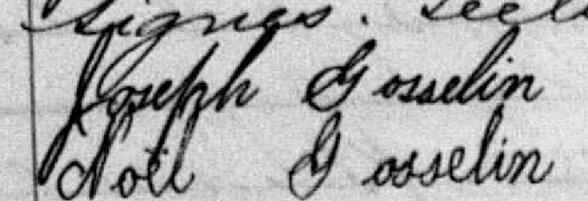 signés.
Joseph Gosselin
Noël Gosselin